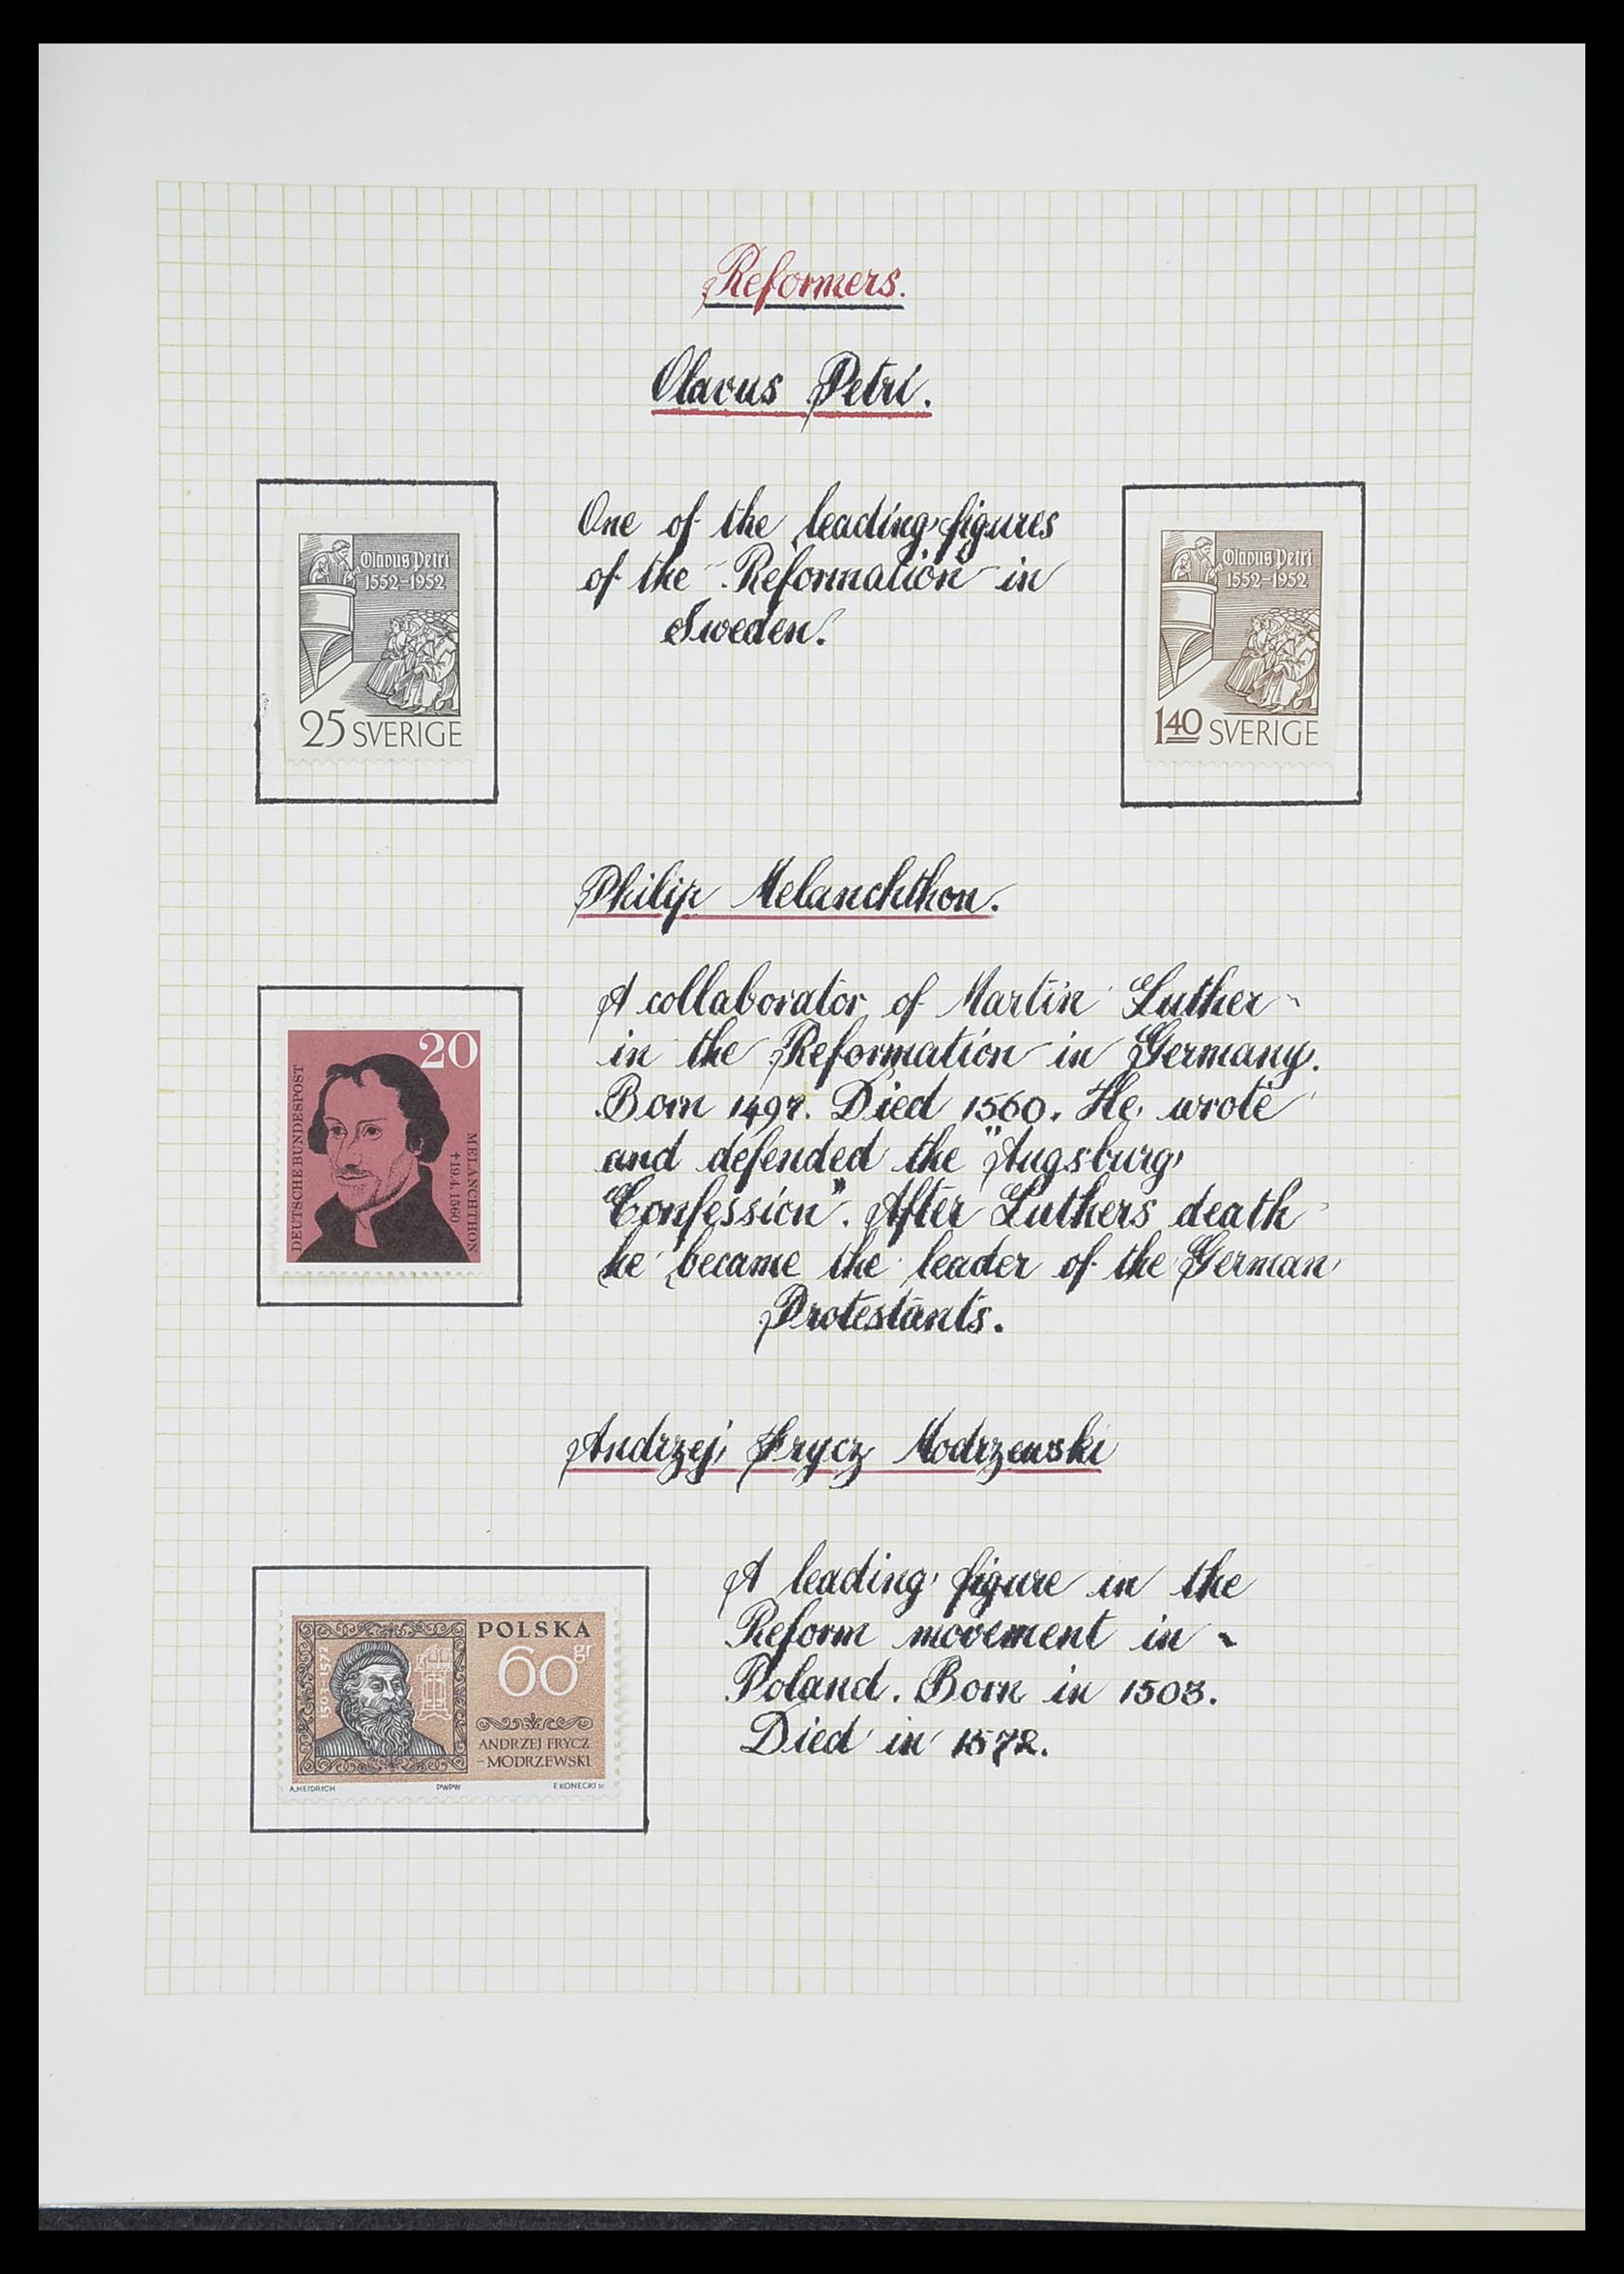 Reformers.
Olavus Petri.
Olavus Petri
1552-1952
25 SVERIGE
One of the leading figures
of the Reformation in
Sweden.
Olavus Petri
1552-1952
140 SVERIGE
Philip Melanchthon.
20
DEUTSCHE BUNDESPOST
MELANCHTHON
†19.4.1560
A collaborator of Martin Luther
in the Reformation in Germany.
Born 1497. Died 1560. He wrote
and defended the "Augsburg
Confession". After Luthers death
he became the leader of the German
Protestants.
Andrzej Frycz Modrzewski
1503 1572
POLSKA
60 gr
ANDRZEJ FRYCZ
-MODRZEWSKI
A.HEIDRICH PWPW E.KONECKI sc
A leading figure in the
Reform movement in
Poland. Born in 1503.
Died in 1572.